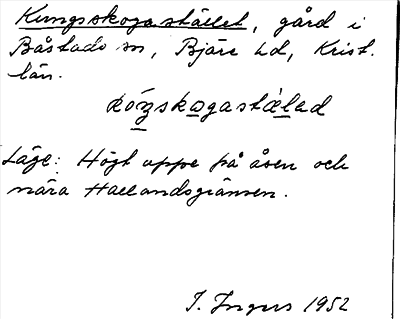 Kungsskogastället, gård i
Båstads sn, Bjäre hd, Krist.
län.
Läge: Högt uppe på åsen och
nära Hallandsgränsen.
I. Ingers 1952